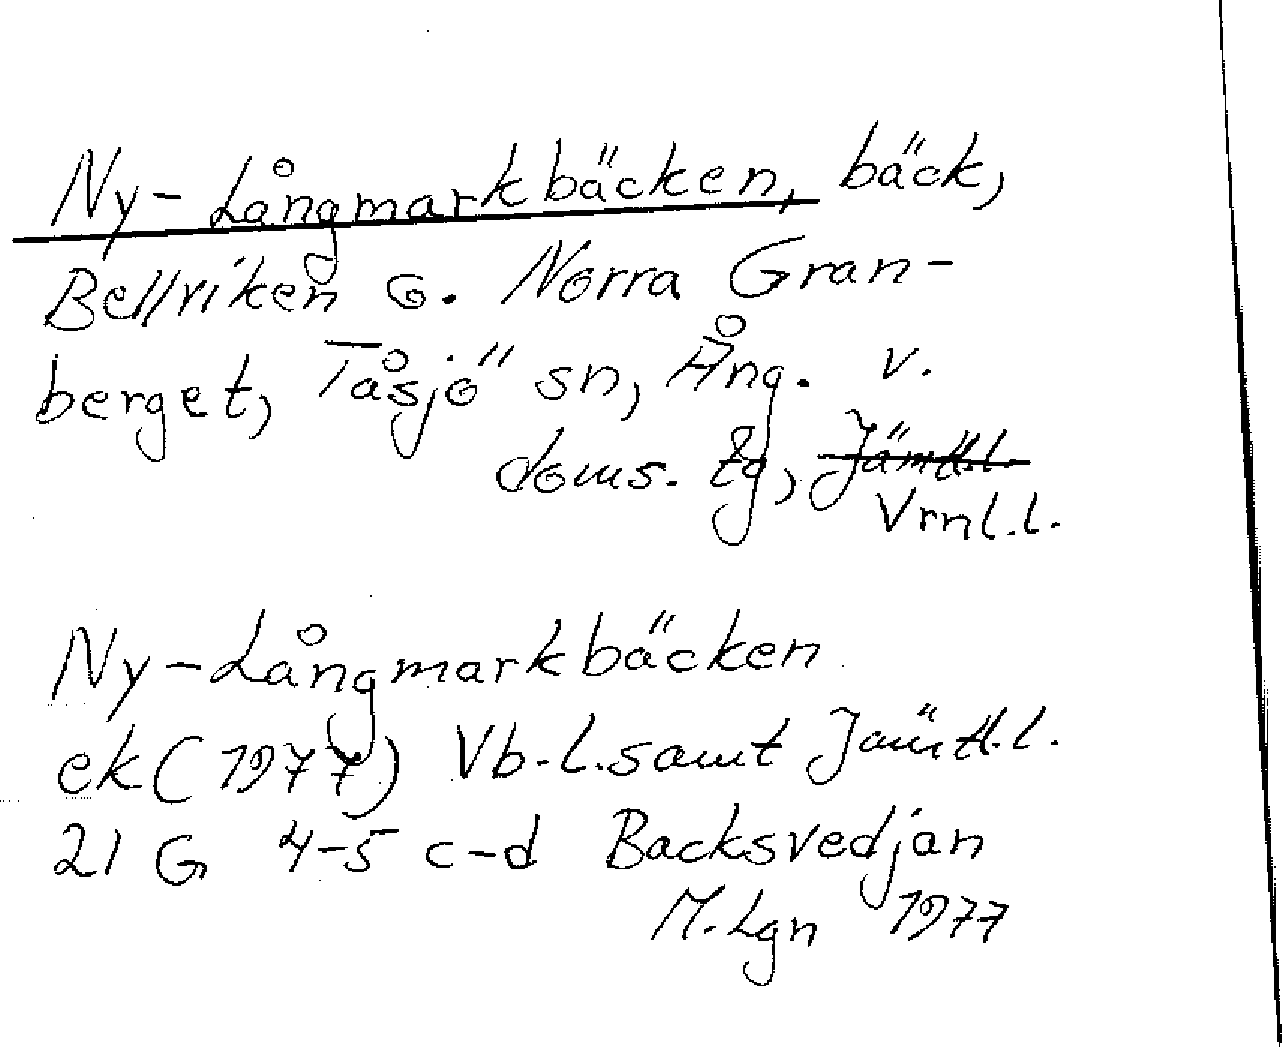 Ny-Långmarkbäcken, bäck,
Bellviken o. Norra Gran-
berget, Tåsjö sn, Ång. v.
doms. tg, Jämtl.l.
Vrnl.l.
Ny-Långmarkbäcken
ek (1977) Vb.l. samt Jämtl.l.
21 G 4-5 c-d Backsvedjan
M.Lgn 1977